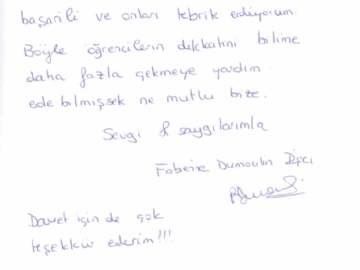 başarılı ve onları tebrik ediyorum.
Böyle öğrencilerin dikkatini bilime
daha fazla çekmeye yardım
edebilmişsek ne mutlu bize.
Sevgi & saygılarımla
Dumoulin
Davet için de çok
teşekkür ederim!!!